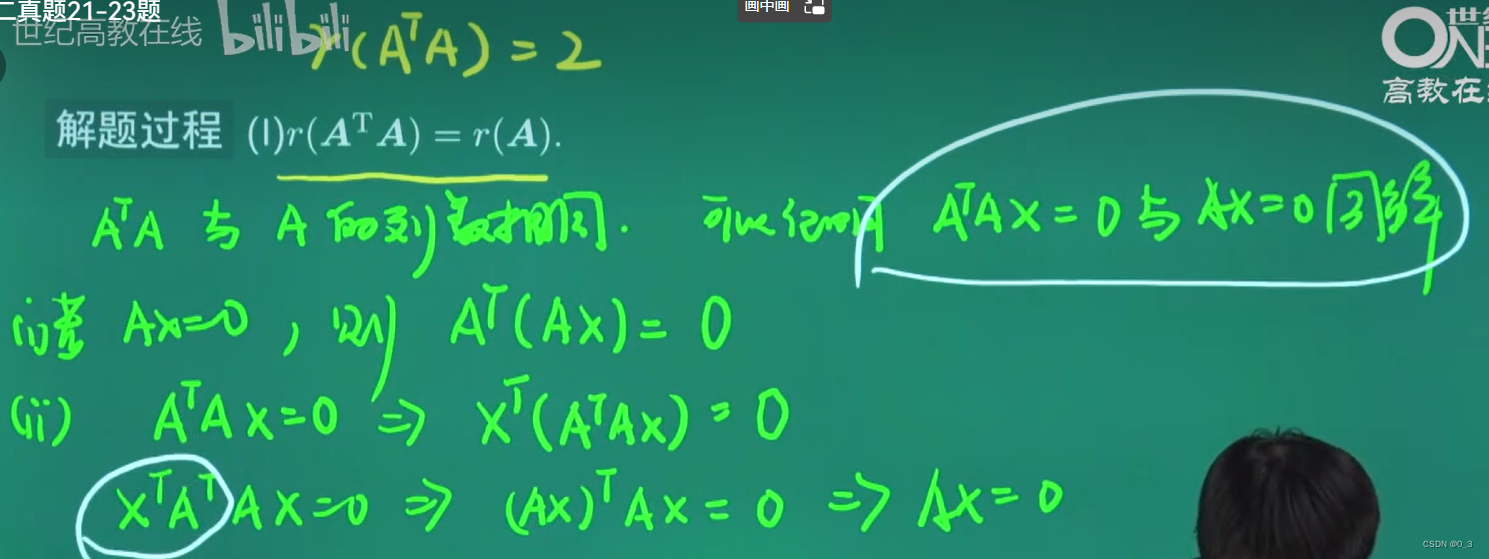 二真题21-23题
画中画
世纪高教在线 bilibili
r(AᵀA) = 2
高教在
解题过程 (1)r(AᵀA) = r(A).
AᵀA 与 A 的列数相同. 可以证明 AᵀAx = 0 与 Ax = 0 同解
(i) 若 Ax=0 , 则 Aᵀ(Ax) = 0
(ii) AᵀAx=0 ⇒ xᵀ(AᵀAx) = 0
xᵀAᵀAx=0 ⇒ (Ax)ᵀAx = 0 ⇒ Ax = 0
CSDN @0_3